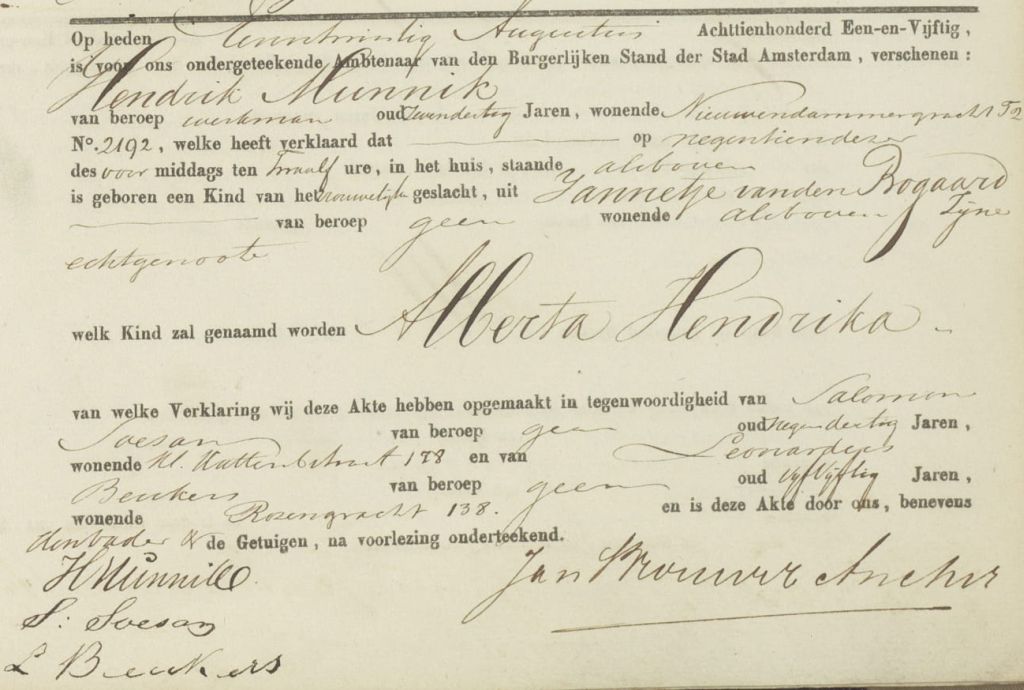 Op heden Eenentwintig Augustus Achttienhonderd Een-en-Vijftig,
is voor ons ondergeteekende Ambtenaar van den Burgerlijken Stand der Stad Amsterdam, verschenen:
Hendrik Munnik
van beroep werkman oud Jaren, wonende Nieuwendammergracht
No. 2192, welke heeft verklaard dat op negentiende
des voor middags ten Twaalf ure, in het huis, staande alsboven
is geboren een Kind van het vrouwelijk geslacht, uit Jannetje van den Bogaard
van beroep geen wonende alsboven Zijne
echtgenoote
welk Kind zal genaamd worden Alberta Hendrika
van welke Verklaring wij deze Akte hebben opgemaakt in tegenwoordigheid van Salomon
Soesan van beroep geen oud Jaren,
wonende 178 en van Leonardus
Beukers van beroep geen oud Vijfvijftig Jaren,
wonende Rosengracht 138. en is deze Akte door ons, benevens
den vader & de Getuigen, na voorlezing onderteekend.
H Munnik
Jan Brouwer Ancher
S: Soesan
L Beukers